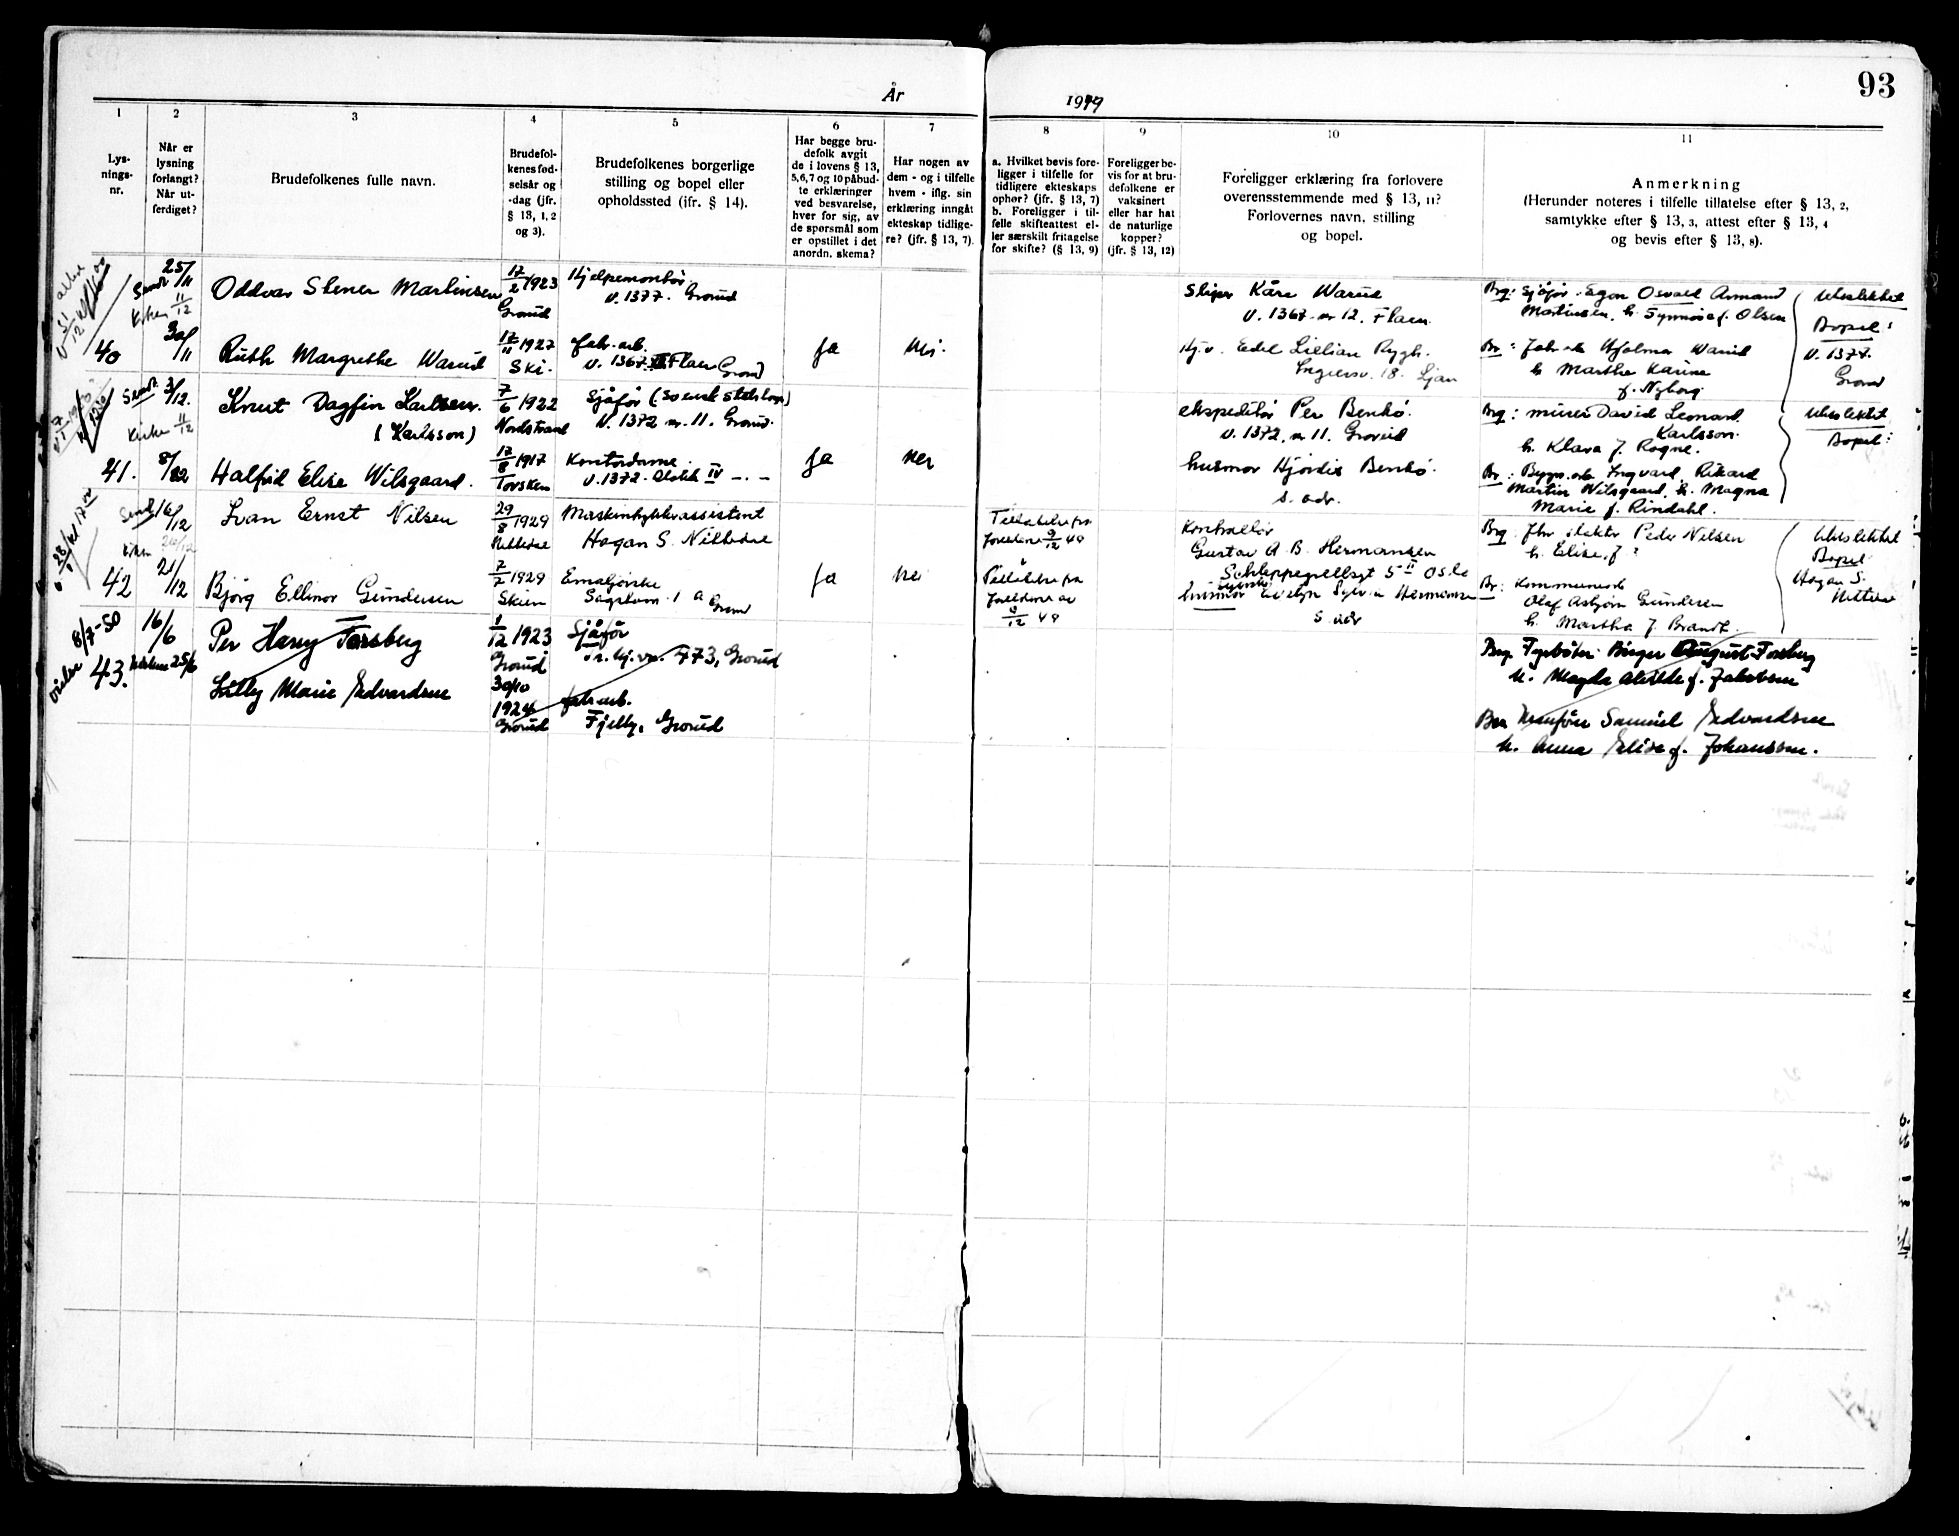 93
År
1949
1
2
3
4
5
6
7
8
9
10
11
Lys-
nings-
nr.
Når er
lysning
forlangt?
Når ut-
ferdiget?
Brudefolkenes fulle navn.
Brudefol-
kenes fød-
selsår og
-dag (jfr.
§ 13, 1, 2
og 3).
Brudefolkenes borgerlige
stilling og bopel eller
opholdssted (ifr. § 14).
Har begge bru-
defolk avgit
de i lovens § 13,
5,6,7 og 10 påbud-
te erklæringer
ved besvarelse,
hver for sig, av
de spørsmål som
er opstillet i det
anordn. skema?
Har nogen av
dem - og i tilfelle
hvem - iflg. sin
erklæring inngåt
ekteskap tidlige-
re? (jfr. § 13, 7).
a. Hvilket bevis fore-
ligger i tilfelle for
tidligere ekteskaps
ophør? (jfr. § 13, 7)
b. Foreligger i til-
felle skifteattest el-
ler særskilt fritagelse
for skifte? (§ 13, 9)
Foreligger be-
vis for at bru-
defolkene er
vaksinert
eller har hat
de naturlige
kopper?
(jfr. § 13, 12)
Foreligger erklæring fra forlovere
overensstemmende med § 13, 11?
Forlovernes navn, stilling
og bopel.
Anmerkning
(Herunder noteres i tilfelle tillatelse efter § 13, 2,
samtykke efter § 13, 3, attest efter § 13, 4
og bevis efter § 13, 8).
40
25/11
Sendt
Kirken 11/12
30/11
Oddvar Stener Martinsen
17/2 1923
Grorud
Hjelpemontør
v. 1377. Grorud
Sliper Kåre Warud
v. 1367 nr 12. Flaen.
Brg: Sjåfør Egon Osvald Armand
Martinsen, h. Synnøve f. Olsen
Utvslektet
Bopel:
v. 1377.
Grorud
Ruth Margrethe Warud
17/11 1927
Ski.
fabr. arb.
v. 1367. Flaen Grorud
Ja
Nei.
Hj.v. Edel Lillian Rygh.
Ingiersv. 18. Ljan
Br: Fabr arb Hjalmar Warud
h Marthe Karine
f. Nyborg
41.
Sendt 3/12.
Kirke 11/12
8/12
Knut Dagfin Karlsen.
(Karlsson)
7/6 1922
Nordstrand
Sjåfør (svensk statsborger)
v. 1372 nr. 11. Grorud.
ekspeditør Per Benkó.
v. 1372, nr 11. Grorud
Brg: murer David Leonard
Karlsson.
h. Klara f. Rogne.
Utvslektet
Bopel:
Halfrid Elise Wilsgaard.
17/8 1917
Torsken
Kontordame.
v. 1372. Blokk IV -.-
Ja
Nei
husmor Hjørdis Benkó.
s. adr.
Br: Bygn. arb Ingvard Rikard
Martin Wilsgaard, h. Magna
Marie f. Rindahl.
42
Sendt 16/12
Kirken
21/12
Ivan Ernst Nilsen
29/8 1929
Nittedal
Maskinstykkerassistent
Hagan S. Nittedal
Tillatelse fra
foreldrene 9/12 49
Kontrollør
Gustav A. B. Hermansen
Schleppegrellsgt 5 II Oslo
Brg: Peder Nilsen
h. Elise, f ?
Utvslektet
Bopel
Hagan S.
Nittedal
Bjørg Ellinor Gundersen
7/7 1929
Skien
Emaljørske
Sagstuen 1 a Grorud
Ja
Nei
Tillatelse fra
foreldrene av
9/12 49
Evelyn Sylvia Hermansen
s. adr
Br: Kommunearb
Olaf Asbjørn Gundersen
h. Martha f. Brandt.
43.
8/7-50
16/6
25/6
Per Harry Forsberg
1/12 1923
Grorud
Sjåfør
Tr. hj. vn. 473, Grorud
Brg Fyrbøter Birger August Forsberg
h. Magda Alvilde f. Jakobsen
Lilly Marie Edvardsen
30/10
1924
Grorud
fabr. arb.
Fjelly, Grorud
Bru Samuel Edvardsen
h. Anna Elise f. Johanssen.